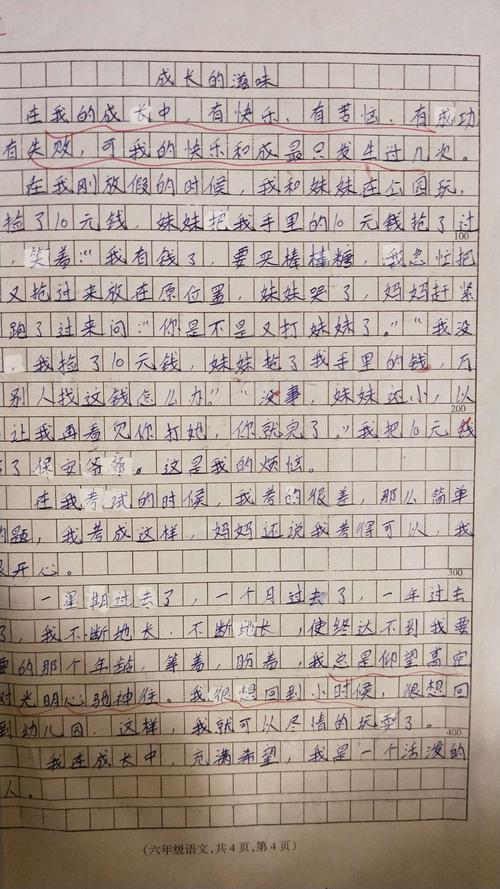 成长的滋味
在我的成长中，有快乐、有苦恼、有成功
有失败，可我的快乐和成最只发生过几次。
在我刚放假的时候，我和妹妹在公园玩，
捡了10元钱，妹妹把我手里的10元钱抢了过
100
，笑着："我有钱了，要买棒棒糖，我急忙把
又抢过来放在原位置，妹妹哭了，妈妈赶紧
跑了过来问："你是不是又打妹妹了。""我没
，我捡了10元钱，妹妹抢了我手里的钱，万
别人找这钱怎么办。""没事，妹妹还小，以
200
让我再看见你打她，你就完了。"我把10元钱
了保安爷爷。这是我的烦恼。
在我考试的时候，我考的很差，那么简单
的题，我考成这样，妈妈还说我考得可以，我
开心。
300
一星期过去了，一个月过去了，一年过去
了，我不断地长，不断地长，使终达不到我要
要的那个年龄，等着，盼着，我总是仰望高空
对光明心驰神往。我很想回到小时候，很想回
到幼儿园，这样，我就可以尽情的玩耍了。
400
我在成长中，充满希望，我是一个活泼的
人。
（六年级语文，共4页，第4页）